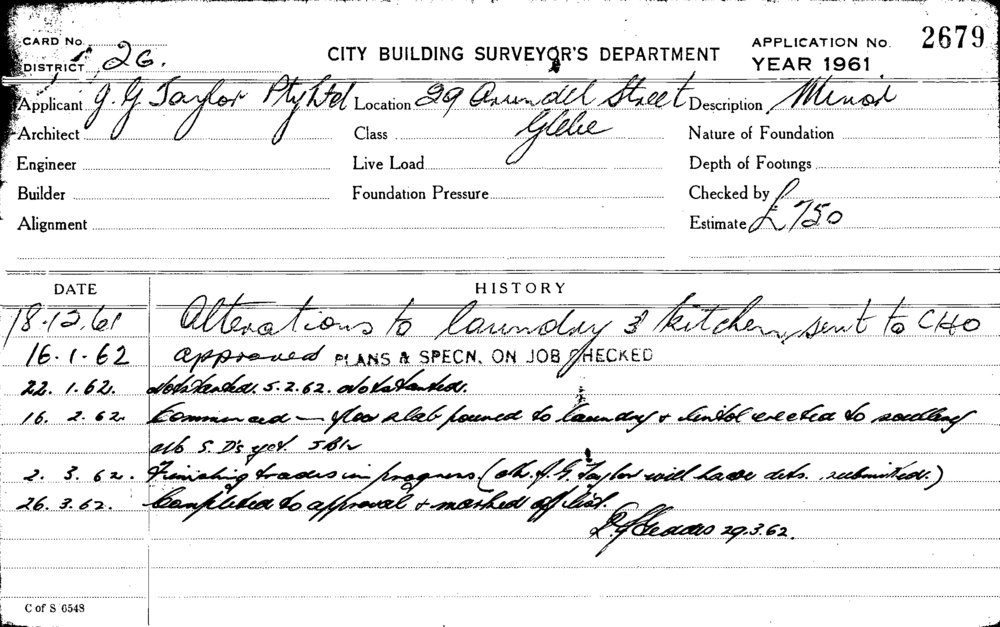 CARD No.
DISTRICT 26.
CITY BUILDING SURVEYOR'S DEPARTMENT
APPLICATION No. 2679
YEAR 1961
Applicant J. G Taylor Pty Ltd Location 29 Arundel Street Description Minor
Architect Class Glebe Nature of Foundation
Engineer Live Load Depth of Footings
Builder Foundation Pressure Checked by
Alignment Estimate £750
DATE HISTORY
18.12.61 Alterations to laundry & kitchen, sent to CHO
16.1.62 approved PLANS & SPECN. ON JOB CHECKED
22.1.62. Not started. 5.2.62. Not started.
16.2.62. Commenced — floor slab poured to laundry + lintol erected to
No S.D's yet.
2.3.62. Finishing trades in progress (Mr. J. G. Taylor will have dets. submitted.)
26.3.62. Completed to approval + marked off list.
29.3.62.
C of S 6548